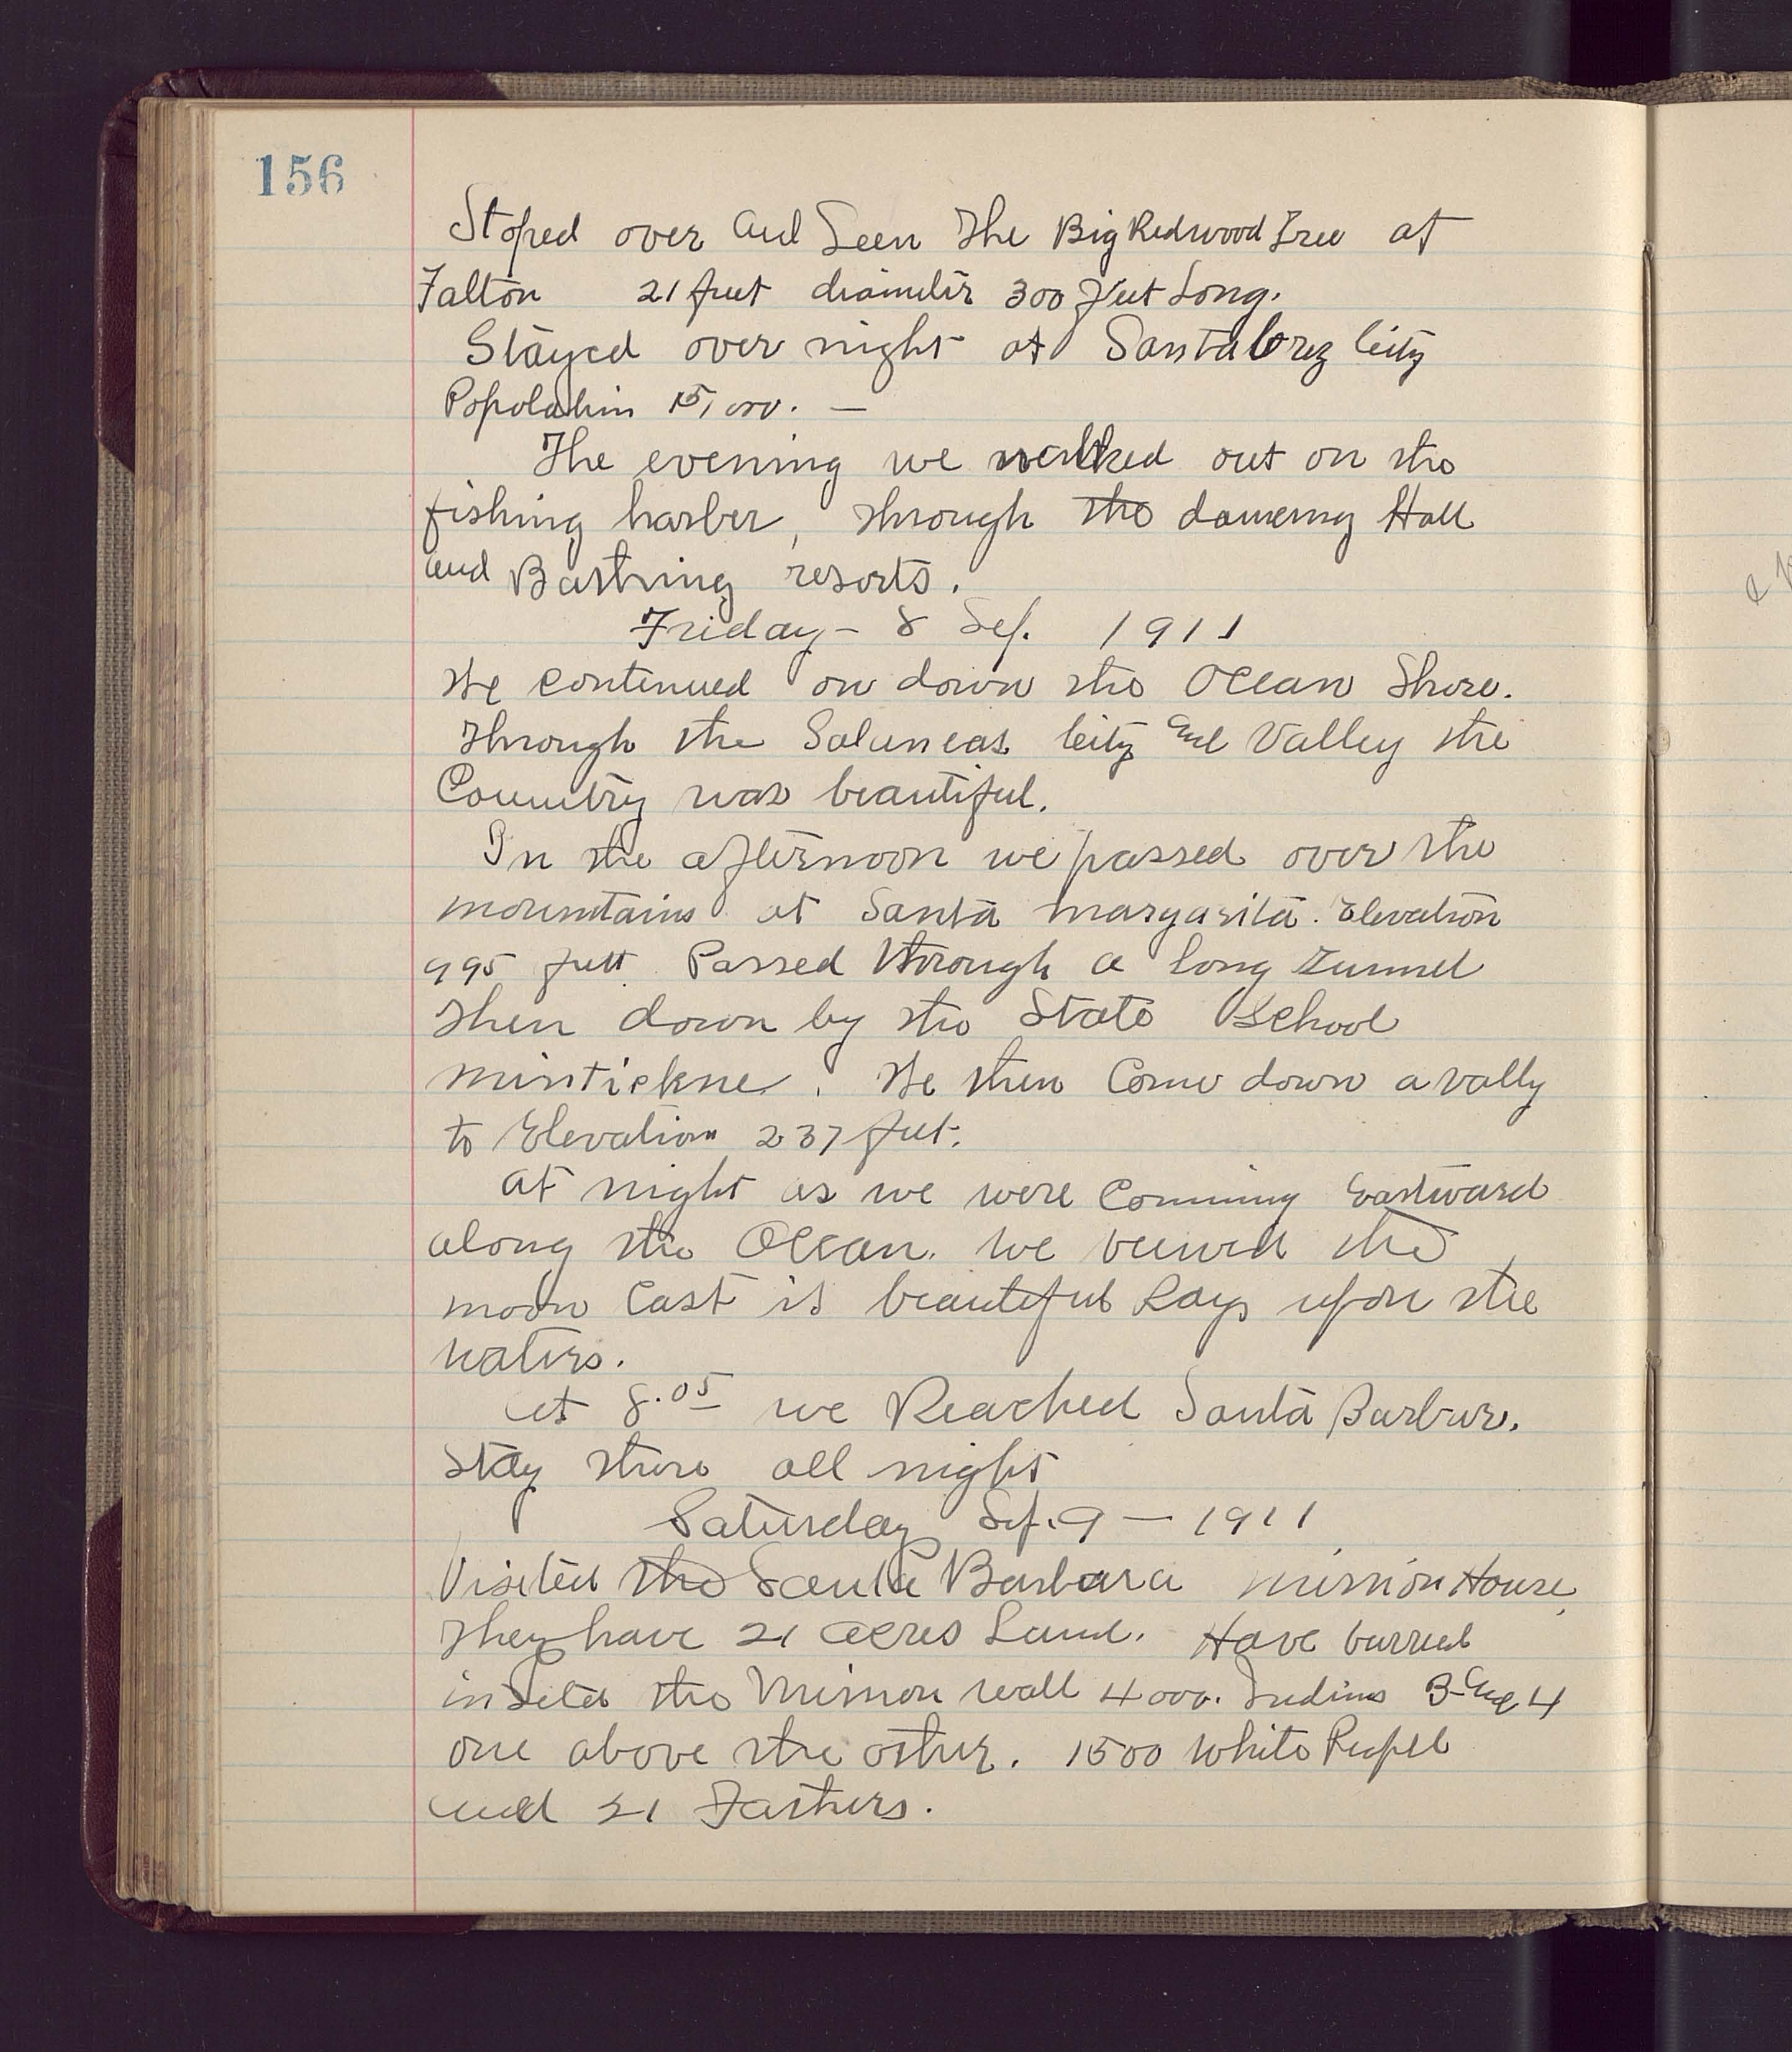 156
Stoped over and Seen The Big Redwood Tree at
Falton 21 feet diameter 300 feet Long.
Stayed over night at Santa Cruz City
Popolation 15,000. —
The evening we walked out on the
fishing harber, through the dancing Hall
and Bathing resorts.
Friday - 8 Sep. 1911
We continued on down the Ocean Shore.
Through the Saluneas City and Valley the
Country was beautiful.
In the afternoon we passed over the
mountains at Santa Margarita. Elevation
995 feet. Passed through a long Tunnel
Then down by the State School
. We then Come down a vally
to Elevation 237 feet.
at night as we were Comming Eastward
along the Ocean. We veiwed the
moon Cast is beautiful Rays upon the
waters.
at 8.05 we Reached Santa Barbur.
Stay there all night
Saturday Sep. 9 — 1911
Visited the Santa Barbara Mission House,
They have 21 acres Land. Have burried
insided the Mission wall 4000. Indians 3 and 4
one above the other. 1500 White Peopel
and 21 Fathers.